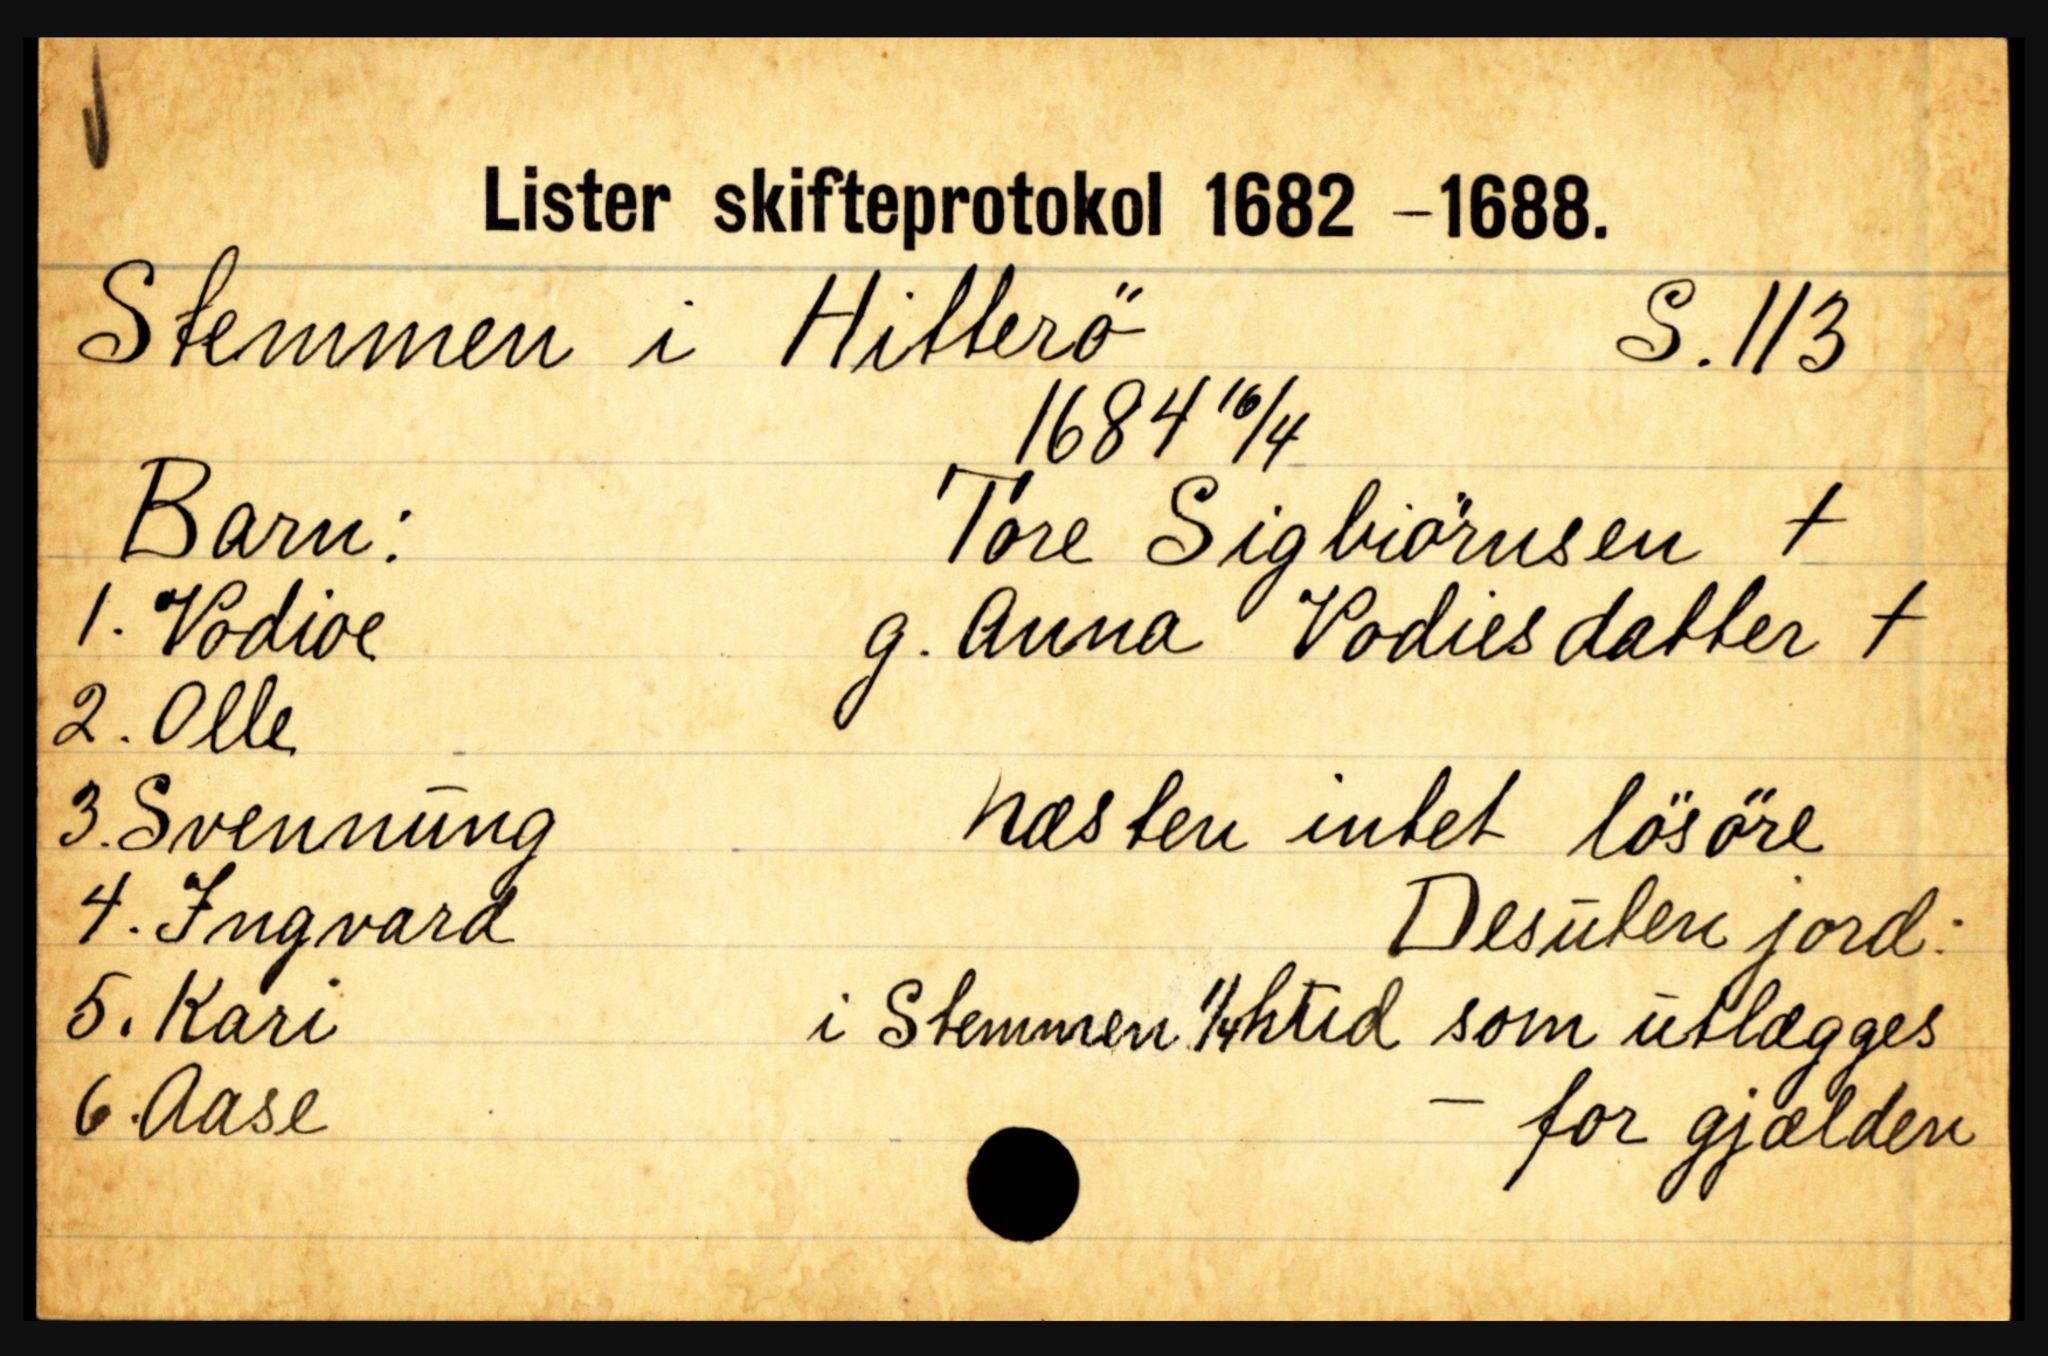 Lister skifteprotokol 1682 - 1688.
Stemmen i Hitterö S. 113
1684 16/4
Barn: Tore Sigbiörnsen †
1. Vodioe g. Anna Vodiesdatter †
2. Olle
3. Svennūng næsten intet lösöre
4. Ingvard Desūten jord:
5. Kari i Stemmen 1/4 hud som ūtlægges
6. Aase – for gjælden